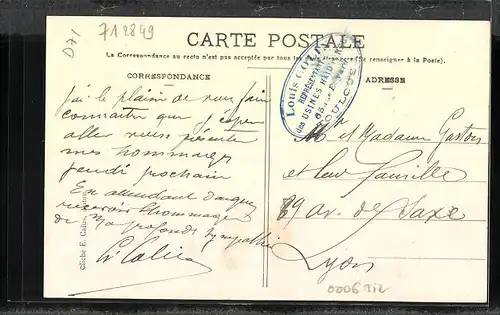 D71
712849
CARTE POSTALE
La Correspondance au recto n'est pas acceptée par tous les pays étrangers (Se renseigner à la Poste).
CORRESPONDANCE
ADRESSE
Louis
REPRÉSENTANT
des USINES
TOULOUSE
J'ai le plaisir de vous faire
connaître que j'espère
aller vous présenter
mes hommages
jeudi prochain
En attendant daignez
recevoir l'hommage
de ma profonde sympathie
Mr et Madame Gaston
et leur famille
89 av. de Saxe
Lyon
Cliché E. Calas
0006 TI2